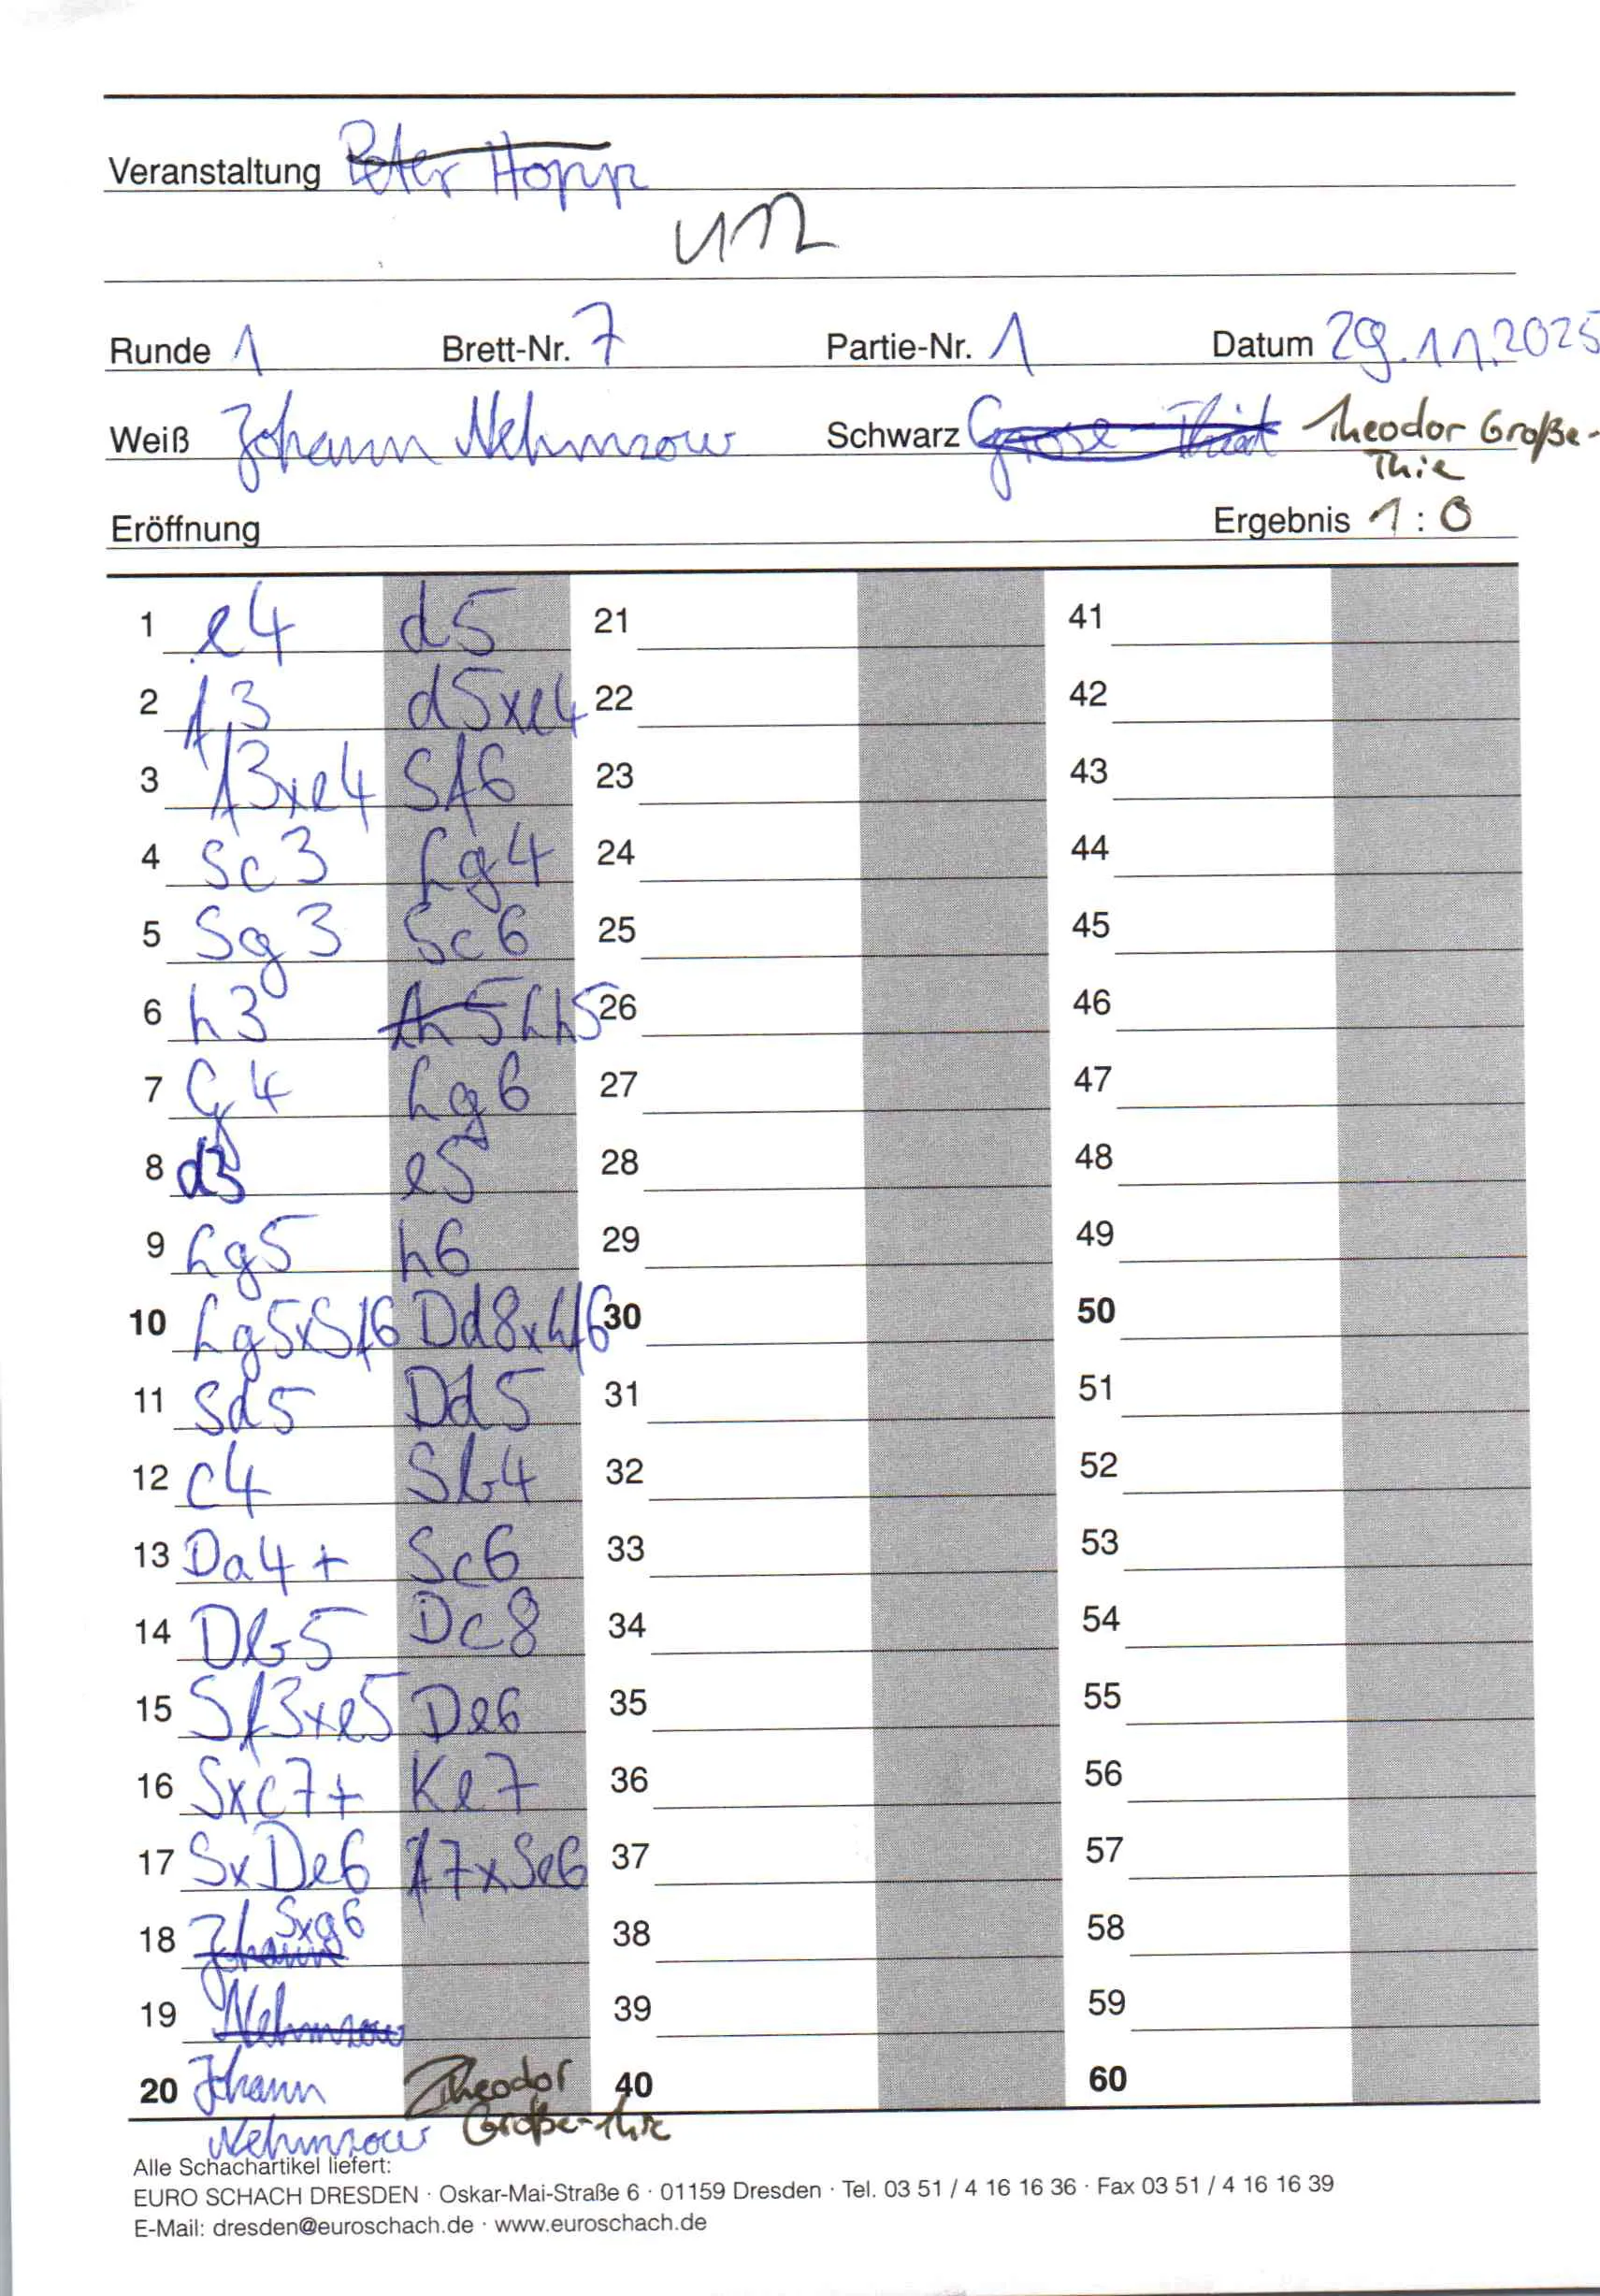 Veranstaltung Peter Hopp
U12
Runde 1 Brett-Nr. 7 Partie-Nr. 1 Datum 29.11.2025
Weiß Johann Nehmzow Schwarz Theodor Große-
Thie
Eröffnung Ergebnis 1 : 0
1 e4 d5 21 41
2 f3 d5xe4 22 42
3 f3xe4 Sf6 23 43
4 Sc3 Lg4 24 44
5 Sg3 Sc6 25 45
6 h3 Lh5 26 46
7 g4 Lg6 27 47
8 d3 e5 28 48
9 Lg5 h6 29 49
10 Lg5xSf6 Dd8xLf6 30 50
11 Sd5 Dd5 31 51
12 c4 Sb4 32 52
13 Da4+ Sc6 33 53
14 Db5 Dc8 34 54
15 Sf3xe5 De6 35 55
16 Sxc7+ Ke7 36 56
17 SxDe6 f7xSe6 37 57
18 Johann Sxg6 38 58
19 Nehmzow 39 59
20 Johann Theodor 40 60
Nehmzow Große-Thie
Alle Schachartikel liefert:
EURO SCHACH DRESDEN · Oskar-Mai-Straße 6 · 01159 Dresden · Tel. 03 51 / 4 16 16 36 · Fax 03 51 / 4 16 16 39
E-Mail: dresden@euroschach.de · www.euroschach.de